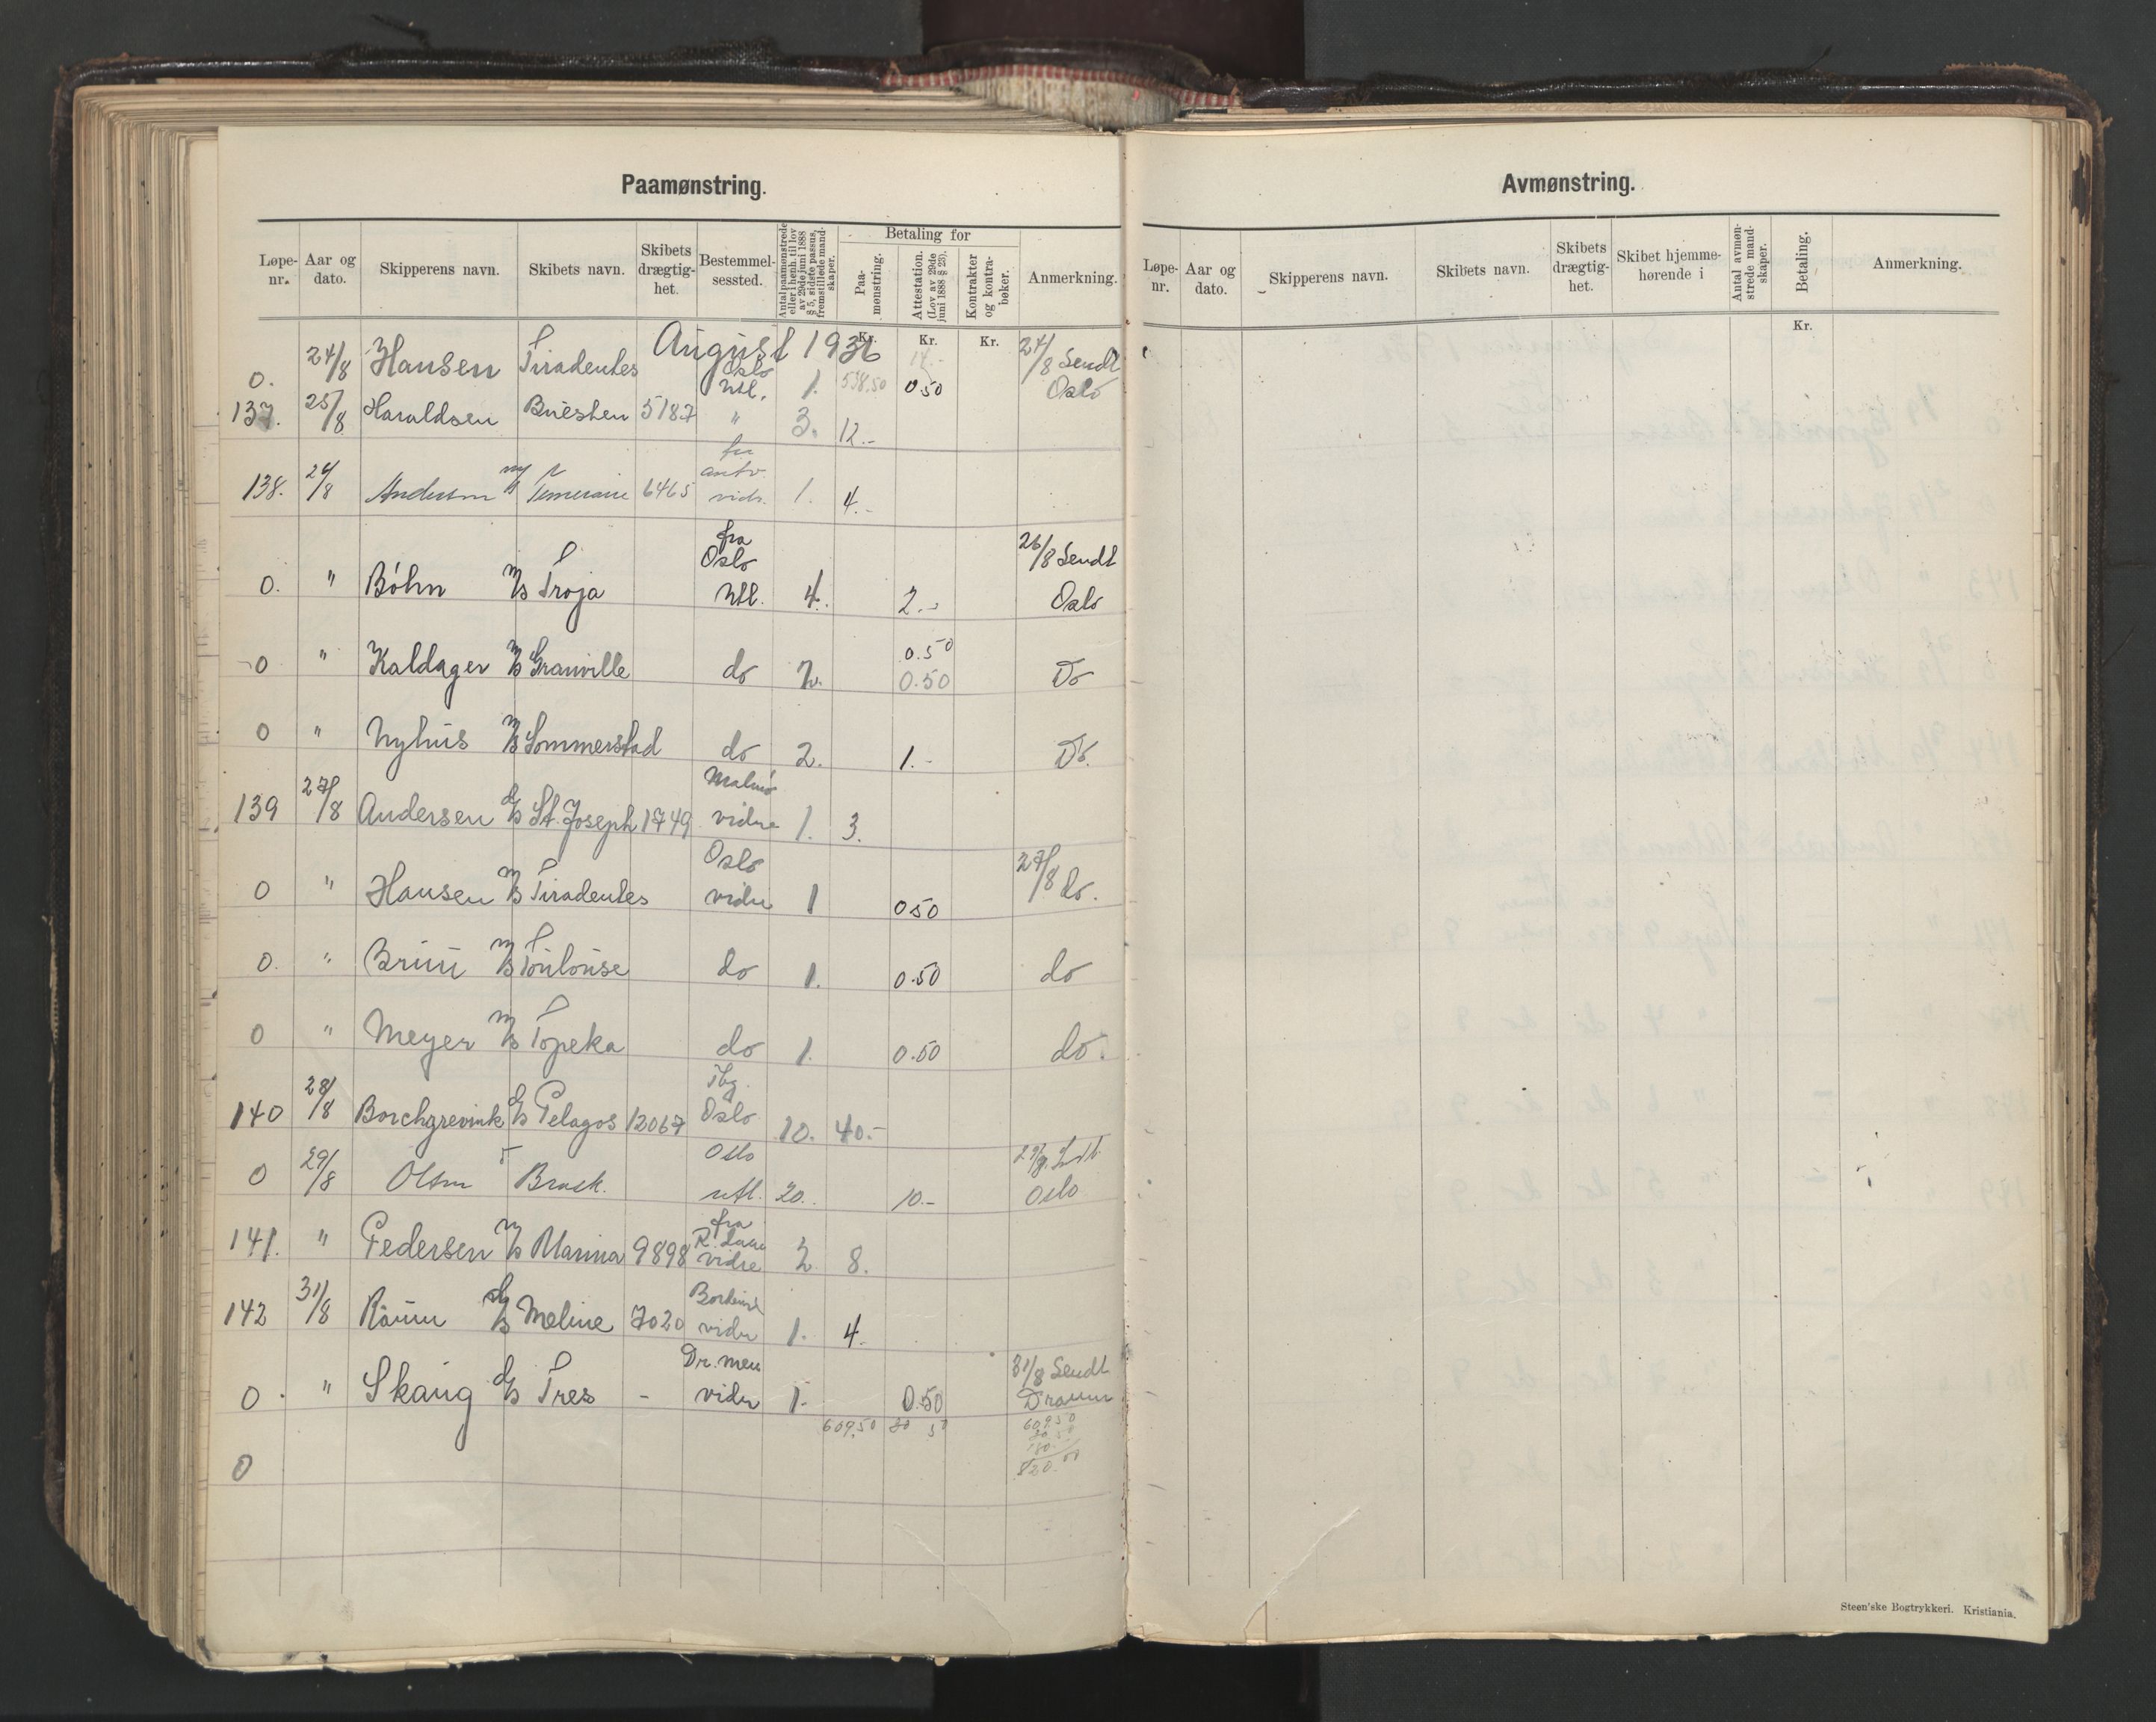 Paamønstring.
Løpe-nr. Aar og dato. Skipperens navn. Skibets navn. Skibets drægtig-het. Bestemmel-sessted. Antal paamønstrede eller i henh. til lov av 29de juni 1888 § 5, sidste passus, fremstillede mand-skaper. Betaling for Paa-mønstring. Attestation. (Lov av 29de juni 1888 § 23). Kontrakter og kontra-bøker. Anmerkning.
Kr. Kr. Kr.
August 1936
0. 24/8 Hansen Tiradentes Oslo Utl. 1. 538.50 14.- 0.50 24/8 Sendt Oslo
137. 25/8 Haraldsen 5187 " 3. 12.-
138. 26/8 Andersen m/s Temeraire 6465 fra antv. vidr. 1. 4.-
0. " Böhn m/s Troja fra Oslo Utl. 4. 2.- 26/8 Sendt Oslo
0 " Kaldager m/s Granville do 2. 0.50 0.50 Do
0 " Nyhus m/s Sommerstad do 2. 1.- Do.
139 27/8 Andersen d/s St. Joseph 1749 Malmö vidre 1. 3.
0 " Hansen m/s Tiradentes Oslo vidre 1 0 50 27/8 do.
0. " Bruu m/s Toulouse do 1. 0.50 do
0 " Meyer m/s Topeka do 1. 0.50 do.
140 28/8 Borchgrevink d/s Pelagos 12067 Tbg. Oslo 10. 40.-
0 29/8 Olsen T Brask. Oslo utl. 20. 10.- 29/8. Sdt. Oslo
141. " Pedersen m/s Marina 9898 fra vidre 2 8.
142 31/8 d/s Meline 7020 vidre 1. 4.
0. " Skaug d/s Tres - Dr.men vidre 1. 0.50 31/8 Sendt Drammen
609.50 20 50 609.50
20.50
180
820.00
0
Avmønstring.
Løpe-nr. Aar og dato. Skipperens navn. Skibets navn. Skibets drægtig-het. Skibet hjemme-hørende i Antal avmøn-strede mand-skaper. Betaling. Anmerkning.
Kr.
Steen'ske Bogtrykkeri. Kristiania.